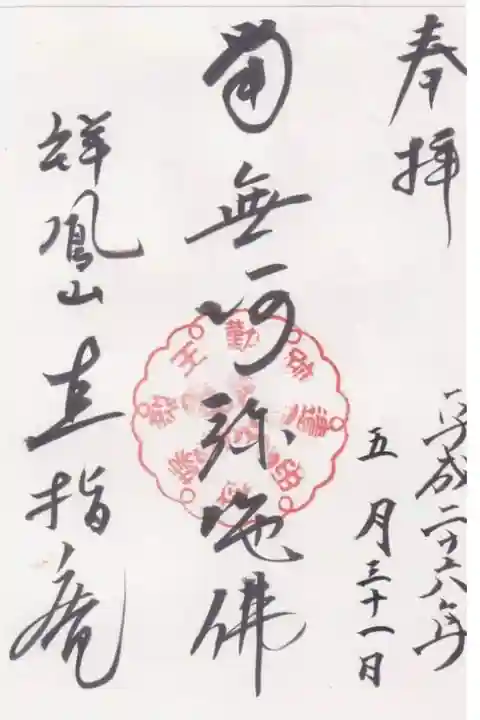 奉拝
平成二十六年
五月三十一日
南無阿弥陀佛
祥鳳山 直指庵
勤王